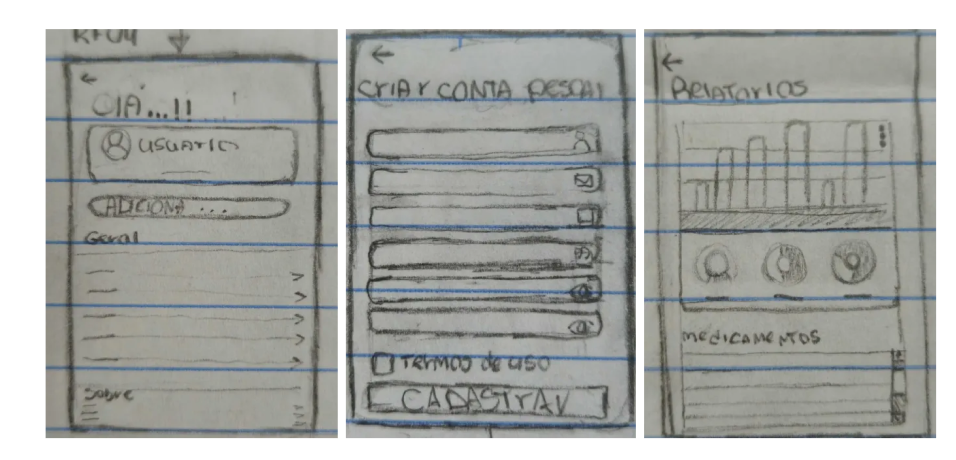 RF04
OlÁ...!!
USUARIO
ADICIONA ...
Geral
Sobre
CrIAr CONTA PESOAl
Termos de uso
CADASTrAr
RelATorIOS
medICAMeNTOS